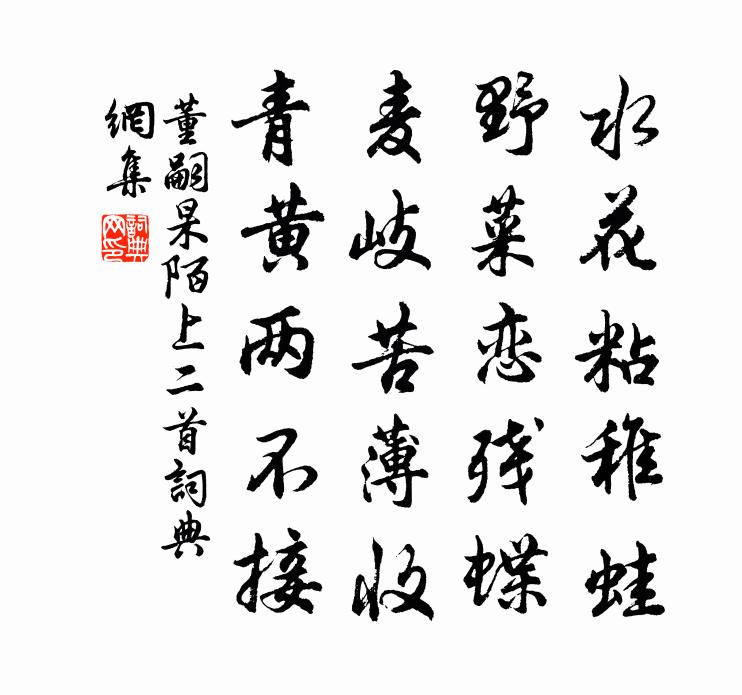 水花粘稚蛙
野菜恋残蝶
麦岐苦薄收
青黄两不接
董嗣杲陌上二首詞典
網集
詞典网印